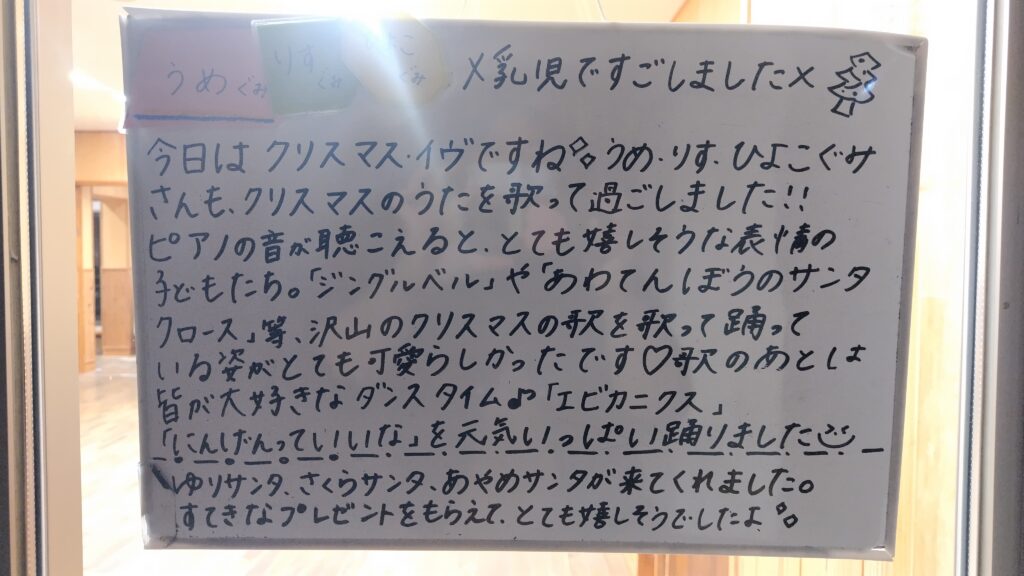 うめぐみ りすぐみ ひよこぐみ ×乳児ですごしました×
今日は クリスマス・イヴですね うめ・りす・ひよこぐみ
さんも、クリスマスのうたを歌って過ごしました!!
ピアノの音が聴こえると、とても嬉しそうな表情の
子どもたち。「ジングルベル」や「あわてんぼうのサンタ
クロース」等、沢山のクリスマスの歌を歌って踊って
いる姿がとても可愛らしかったです♡歌のあとは
皆が大好きなダンスタイム♪「エビカニクス」
「にんげんっていいな」を元気いっぱい踊りました
ゆりサンタ、さくらサンタ、あやめサンタが来てくれました。
すてきなプレゼントをもらえて、とても嬉しそうでしたよ